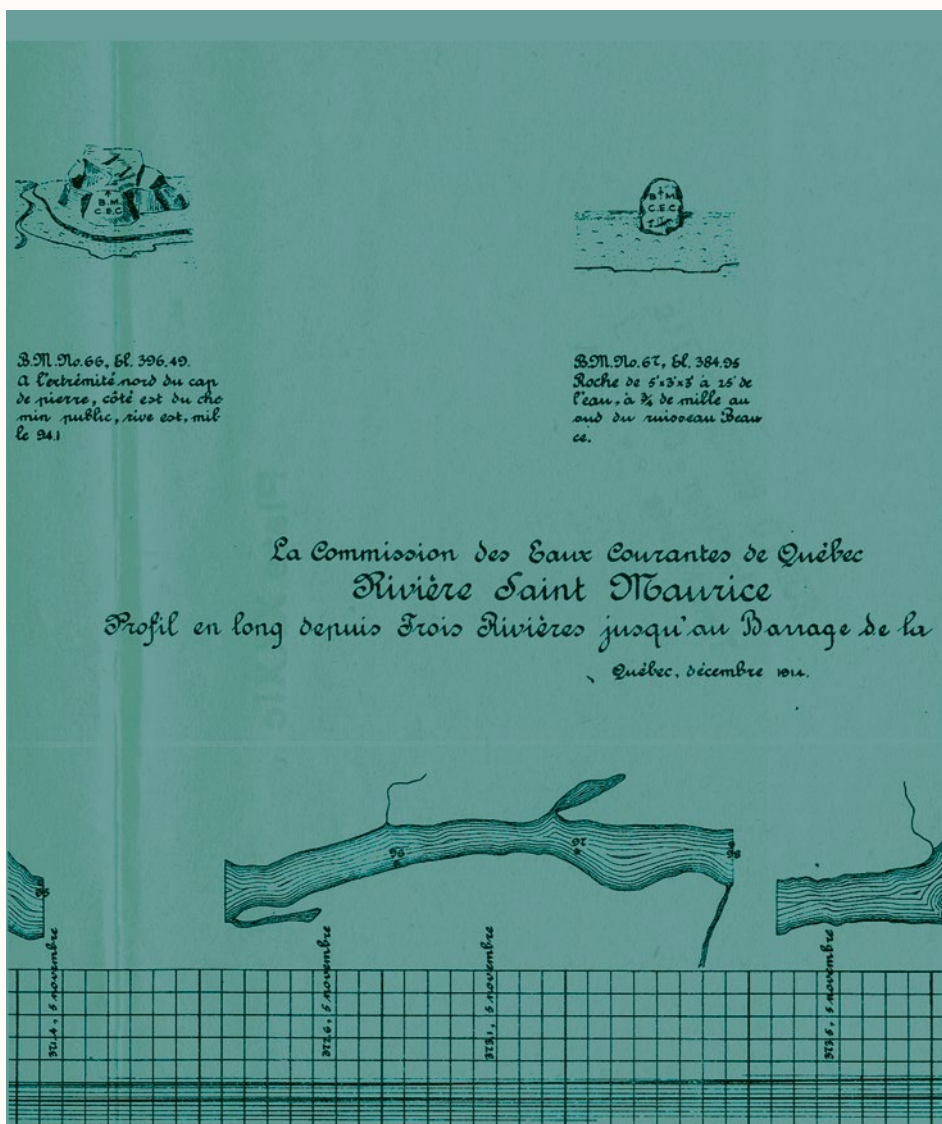 B.M.
C.E.C
B.M.
C.E.C
B.M. No. 66, El. 396.49.
A l'extrémité nord du cap
de pierre, côté est du che
min public, rive est, mil
le 94.1
B.M. No. 67, El. 384.95
Roche de 5'x3'x3' à 25' de
l'eau, à ¾ de mille au
sud du ruisseau Beau
ce.
La Commission des Eaux Courantes de Québec
Rivière Saint Maurice
Profil en long depuis Trois Rivières jusqu'au Barrage de la
Québec, décembre 1914.
96
97
98
371.4, 5 novembre
372.6, 5 novembre
373.1, 5 novembre
373.5, 5 novembre